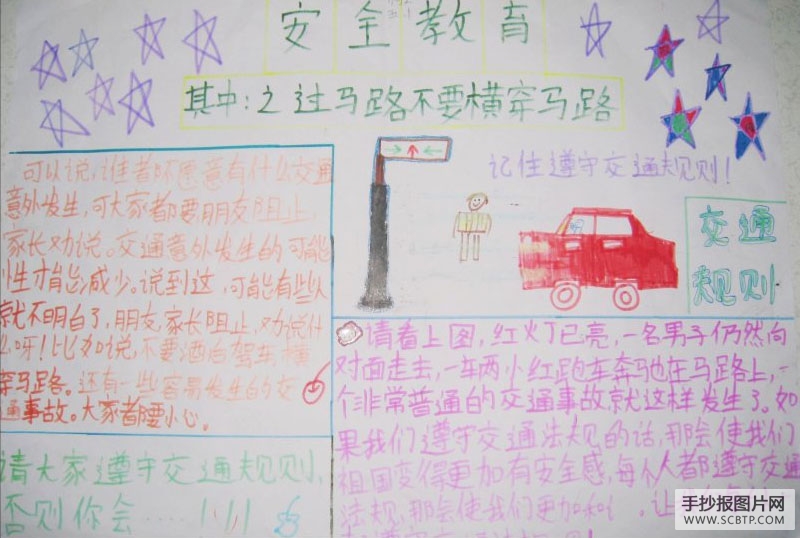 安全教育
其中:之过马路不要横穿马路
记住遵守交通规则!
交通
规则
可以说,谁都不愿意有什么交通
意外发生,可大家都要朋友阻止,
家长劝说。交通意外发生的可能
性才能减少。说到这,可能有些人
就不明白了,朋友,家长阻止,劝说什
么呀!比如说,不要酒后驾车,横
穿马路。还有一些容易发生的交
通事故。大家都要小心。
请大家遵守交通规则,
否则你会……!!!!
请看上图,红灯已亮,一名男子仍然向
对面走去,一车两小红跑车奔驰在马路上,一
个非常普通的交通事故就这样发生了。如
果我们遵守交通法规的话,那会使我们
祖国变得更加有安全感,每个人都遵守交通
法规,那会使我们更加和 。让
手抄报图片网
WWW.SCBTP.COM